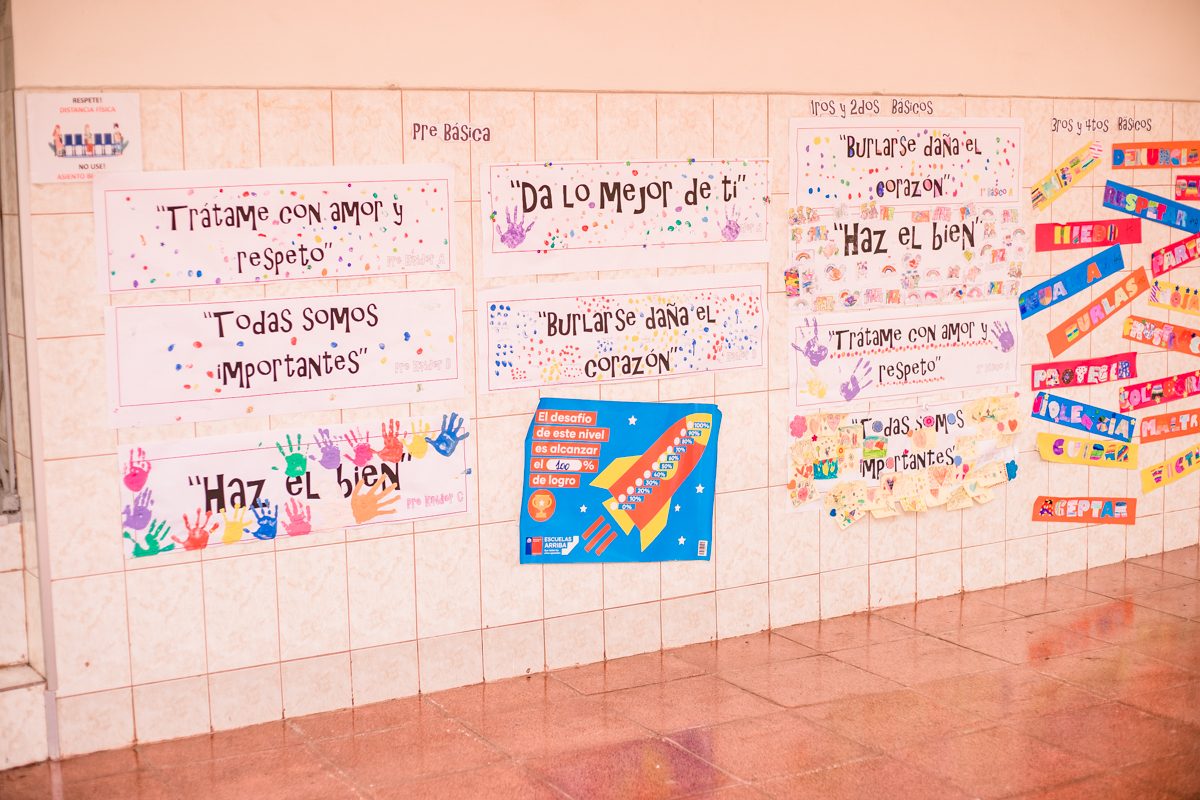 RESPETE!
DISTANCIA FÍSICA
NO USE!
Pre Básica
"Trátame con amor y
respeto"
Pre Kinder A
"Todas somos
importantes"
Pre Kinder B
"Haz el bien"
Pre Kinder C
"Da lo mejor de ti"
"Burlarse daña el
corazón"
El desafío
de este nivel
es alcanzar
el 100 %
de logro
100%
90%
80%
70%
60%
50%
40%
30%
20%
10%
0%
ESCUELAS
ARRIBA
1ros y 2dos Básicos
"Burlarse daña el
corazón"
1° Básico A
"Haz el bien"
"Trátame con amor y
respeto"
"Todas somos
importantes"
3ros y 4tos Básicos
RESPETAR
MIEDO
BURLAS
PROTEGER
VIOLENCIA
CUIDAR
ACEPTAR